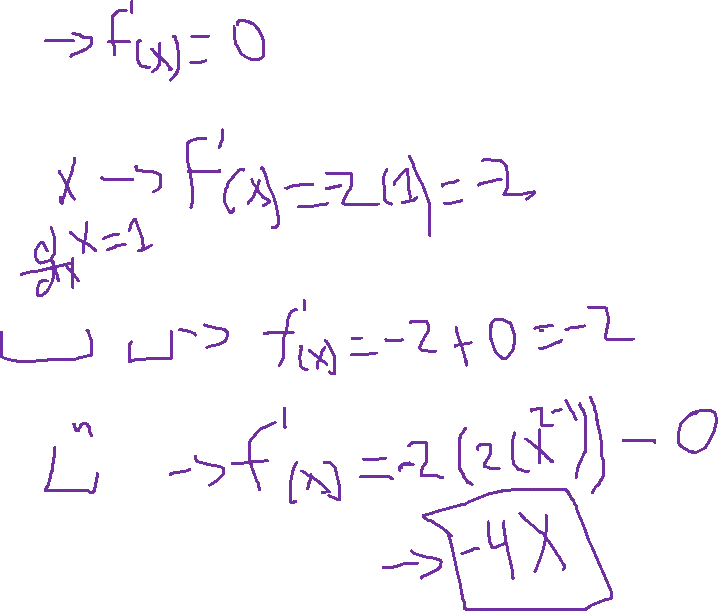 → f'(x) = 0
x → f'(x) = -2(1) = -2
d/dx x = 1
→ f'(x) = -2 + 0 = -2
n → f'(x) = -2(2(x^{2-1})) - 0
→ -4x